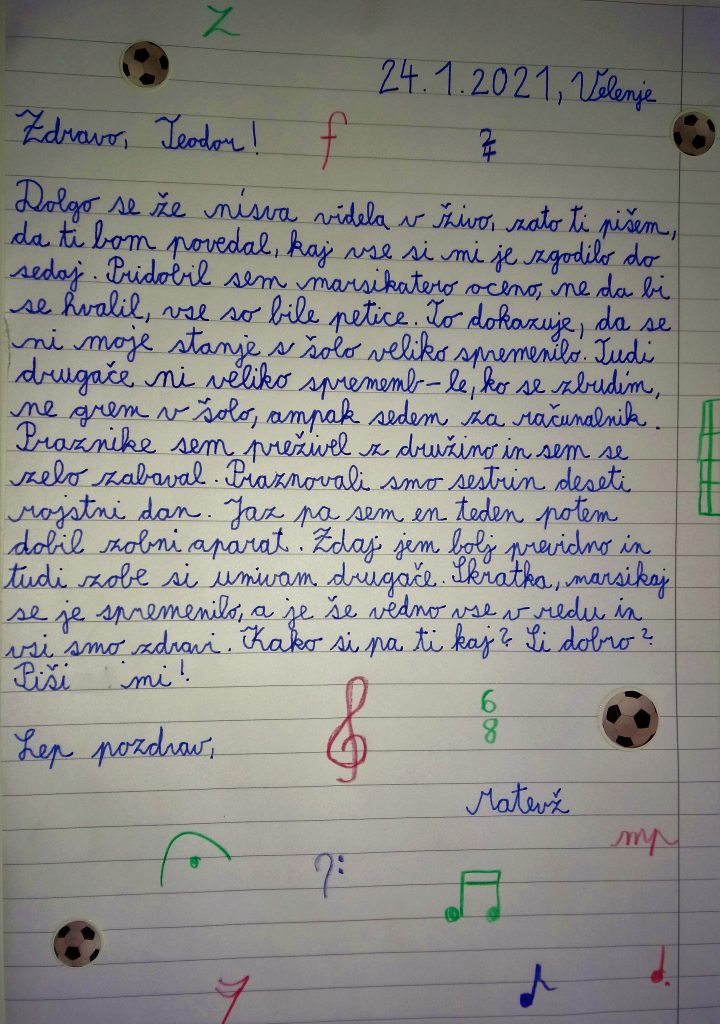 24.1.2021, Velenje
Zdravo, Teodor! f 2/4
Dolgo se že nisva videla v živo, zato ti pišem,
da ti bom povedal, kaj vse si mi je zgodilo do
sedaj. Pridobil sem marsikatero oceno, ne da bi
se hvalil, vse so bile petice. To dokazuje, da se
ni moje stanje s šolo veliko spremenilo. Tudi
drugače ni veliko sprememb-le, ko se zbudim,
ne grem v šolo, ampak sedem za računalnik.
Praznike sem preživel z družino in sem se
zelo zabaval. Praznovali smo sestrin deseti
rojstni dan. Jaz pa sem en teden potem
dobil zobni aparat. Zdaj jem bolj previdno in
tudi zobe si umivam drugače. Skratka, marsikaj
se je spremenilo, a je še vedno vse v redu in
vsi smo zdravi. Kako si pa ti kaj? Si dobro?
Piši mi!
6
8
Lep pozdrav,
Matevž
mp